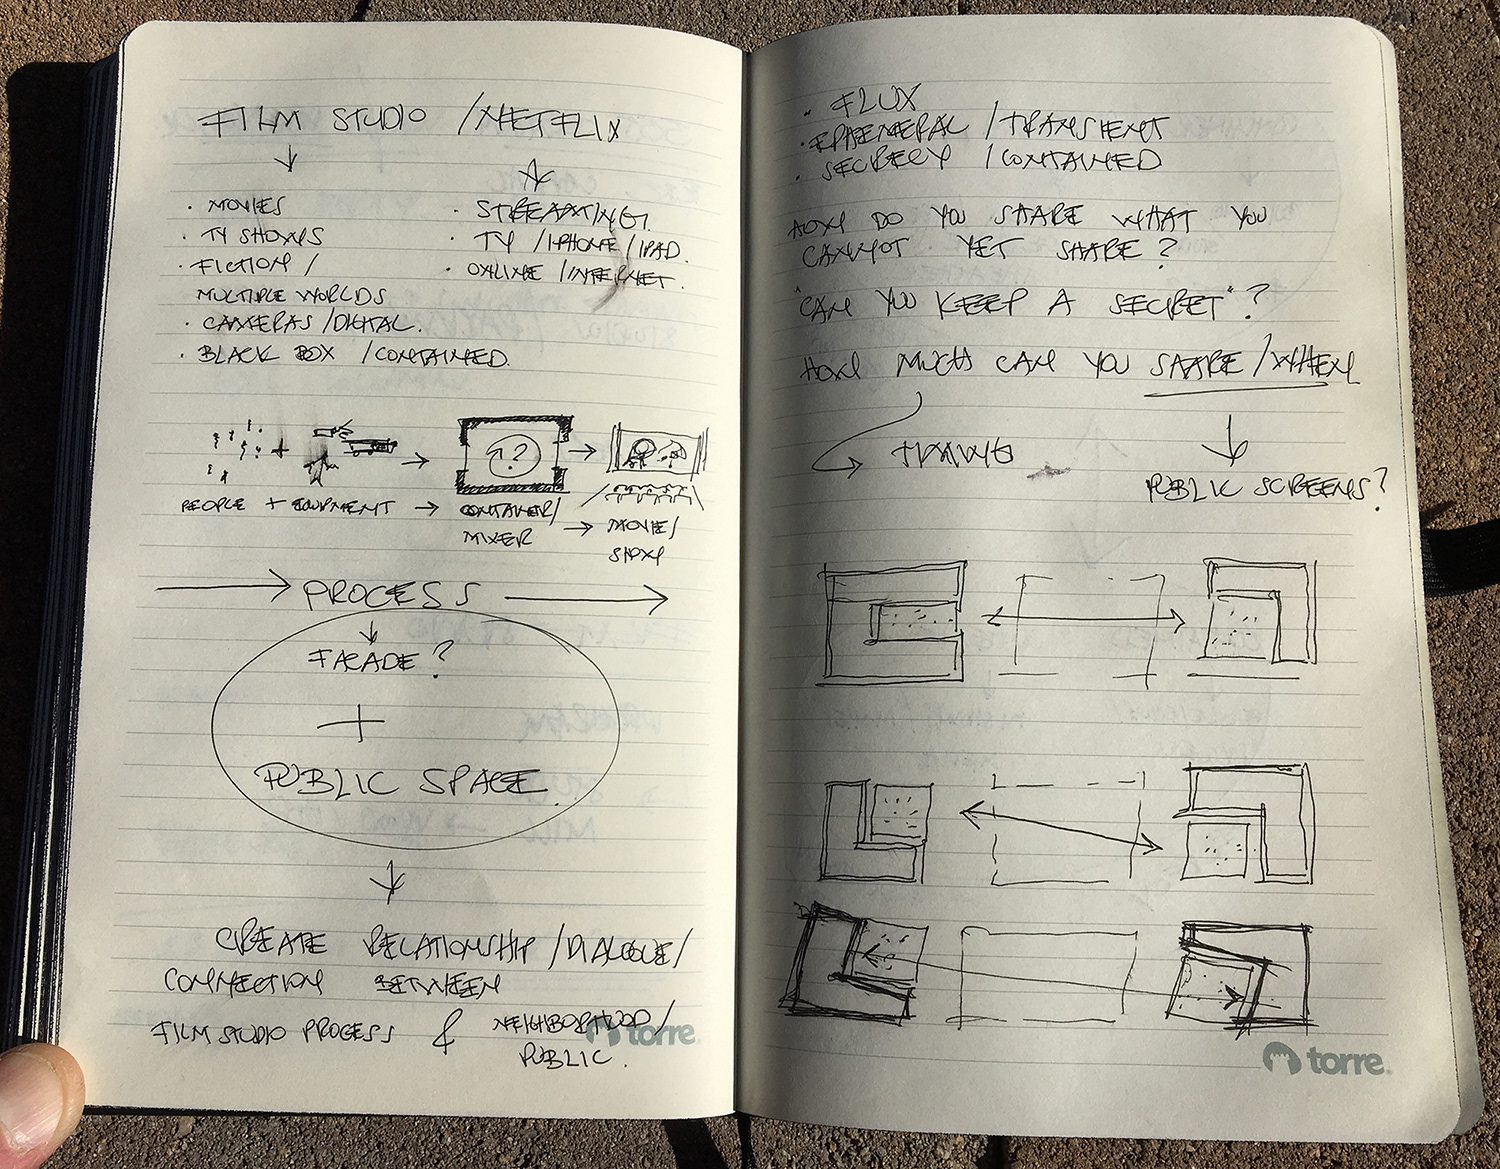 FILM STUDIO / NETFLIX
· MOVIES
· TV SHOWS
· FICTION /
MULTIPLE WORLDS
· CAMERAS / DIGITAL.
· BLACK BOX / CONTAINED.
· STREAMING.
· TV / IPHONE / IPAD.
· ONLINE / INTERNET.
?
PEOPLE + EQUIPMENT → CONTAINER/ → MOVIE/
MIXER
SHOW
→ PROCESS →
FACADE?
+
PUBLIC SPACE.
CREATE RELATIONSHIP / DIALOGUE /
CONNECTION BETWEEN
FILM STUDIO PROCESS & NEIGHBORHOOD /
PUBLIC.
torre.
· FLUX
· EPHEMERAL / TRANSIENT
· SECRECY / CONTAINED
HOW DO YOU SHARE WHAT YOU
CANNOT YET SHARE?
"CAN YOU KEEP A SECRET"?
HOW MUCH CAN YOU SHARE / WHEN
→ TIMING
PUBLIC SCREENS?
torre.